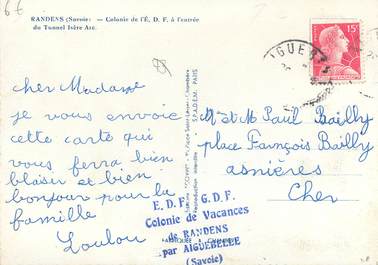 6€
RANDENS (Savoie) — Colonie de l'É. D. F. à l'entrée
du Tunnel Isère Arc
15F
AIGUEB
cher Madame
je vous envoie
cette carte qui
vous ferra bien
blaisir et bien
bonjour pour la
famille
Loulou
S.P.A.D.E.M. PARIS
Met Mt Paul Bailly
place François Bailly
asnières
Cher
E.D.F. G.D.F.
Colonie de Vacances
de RANDENS
par AIGUEBELLE
(Savoie)